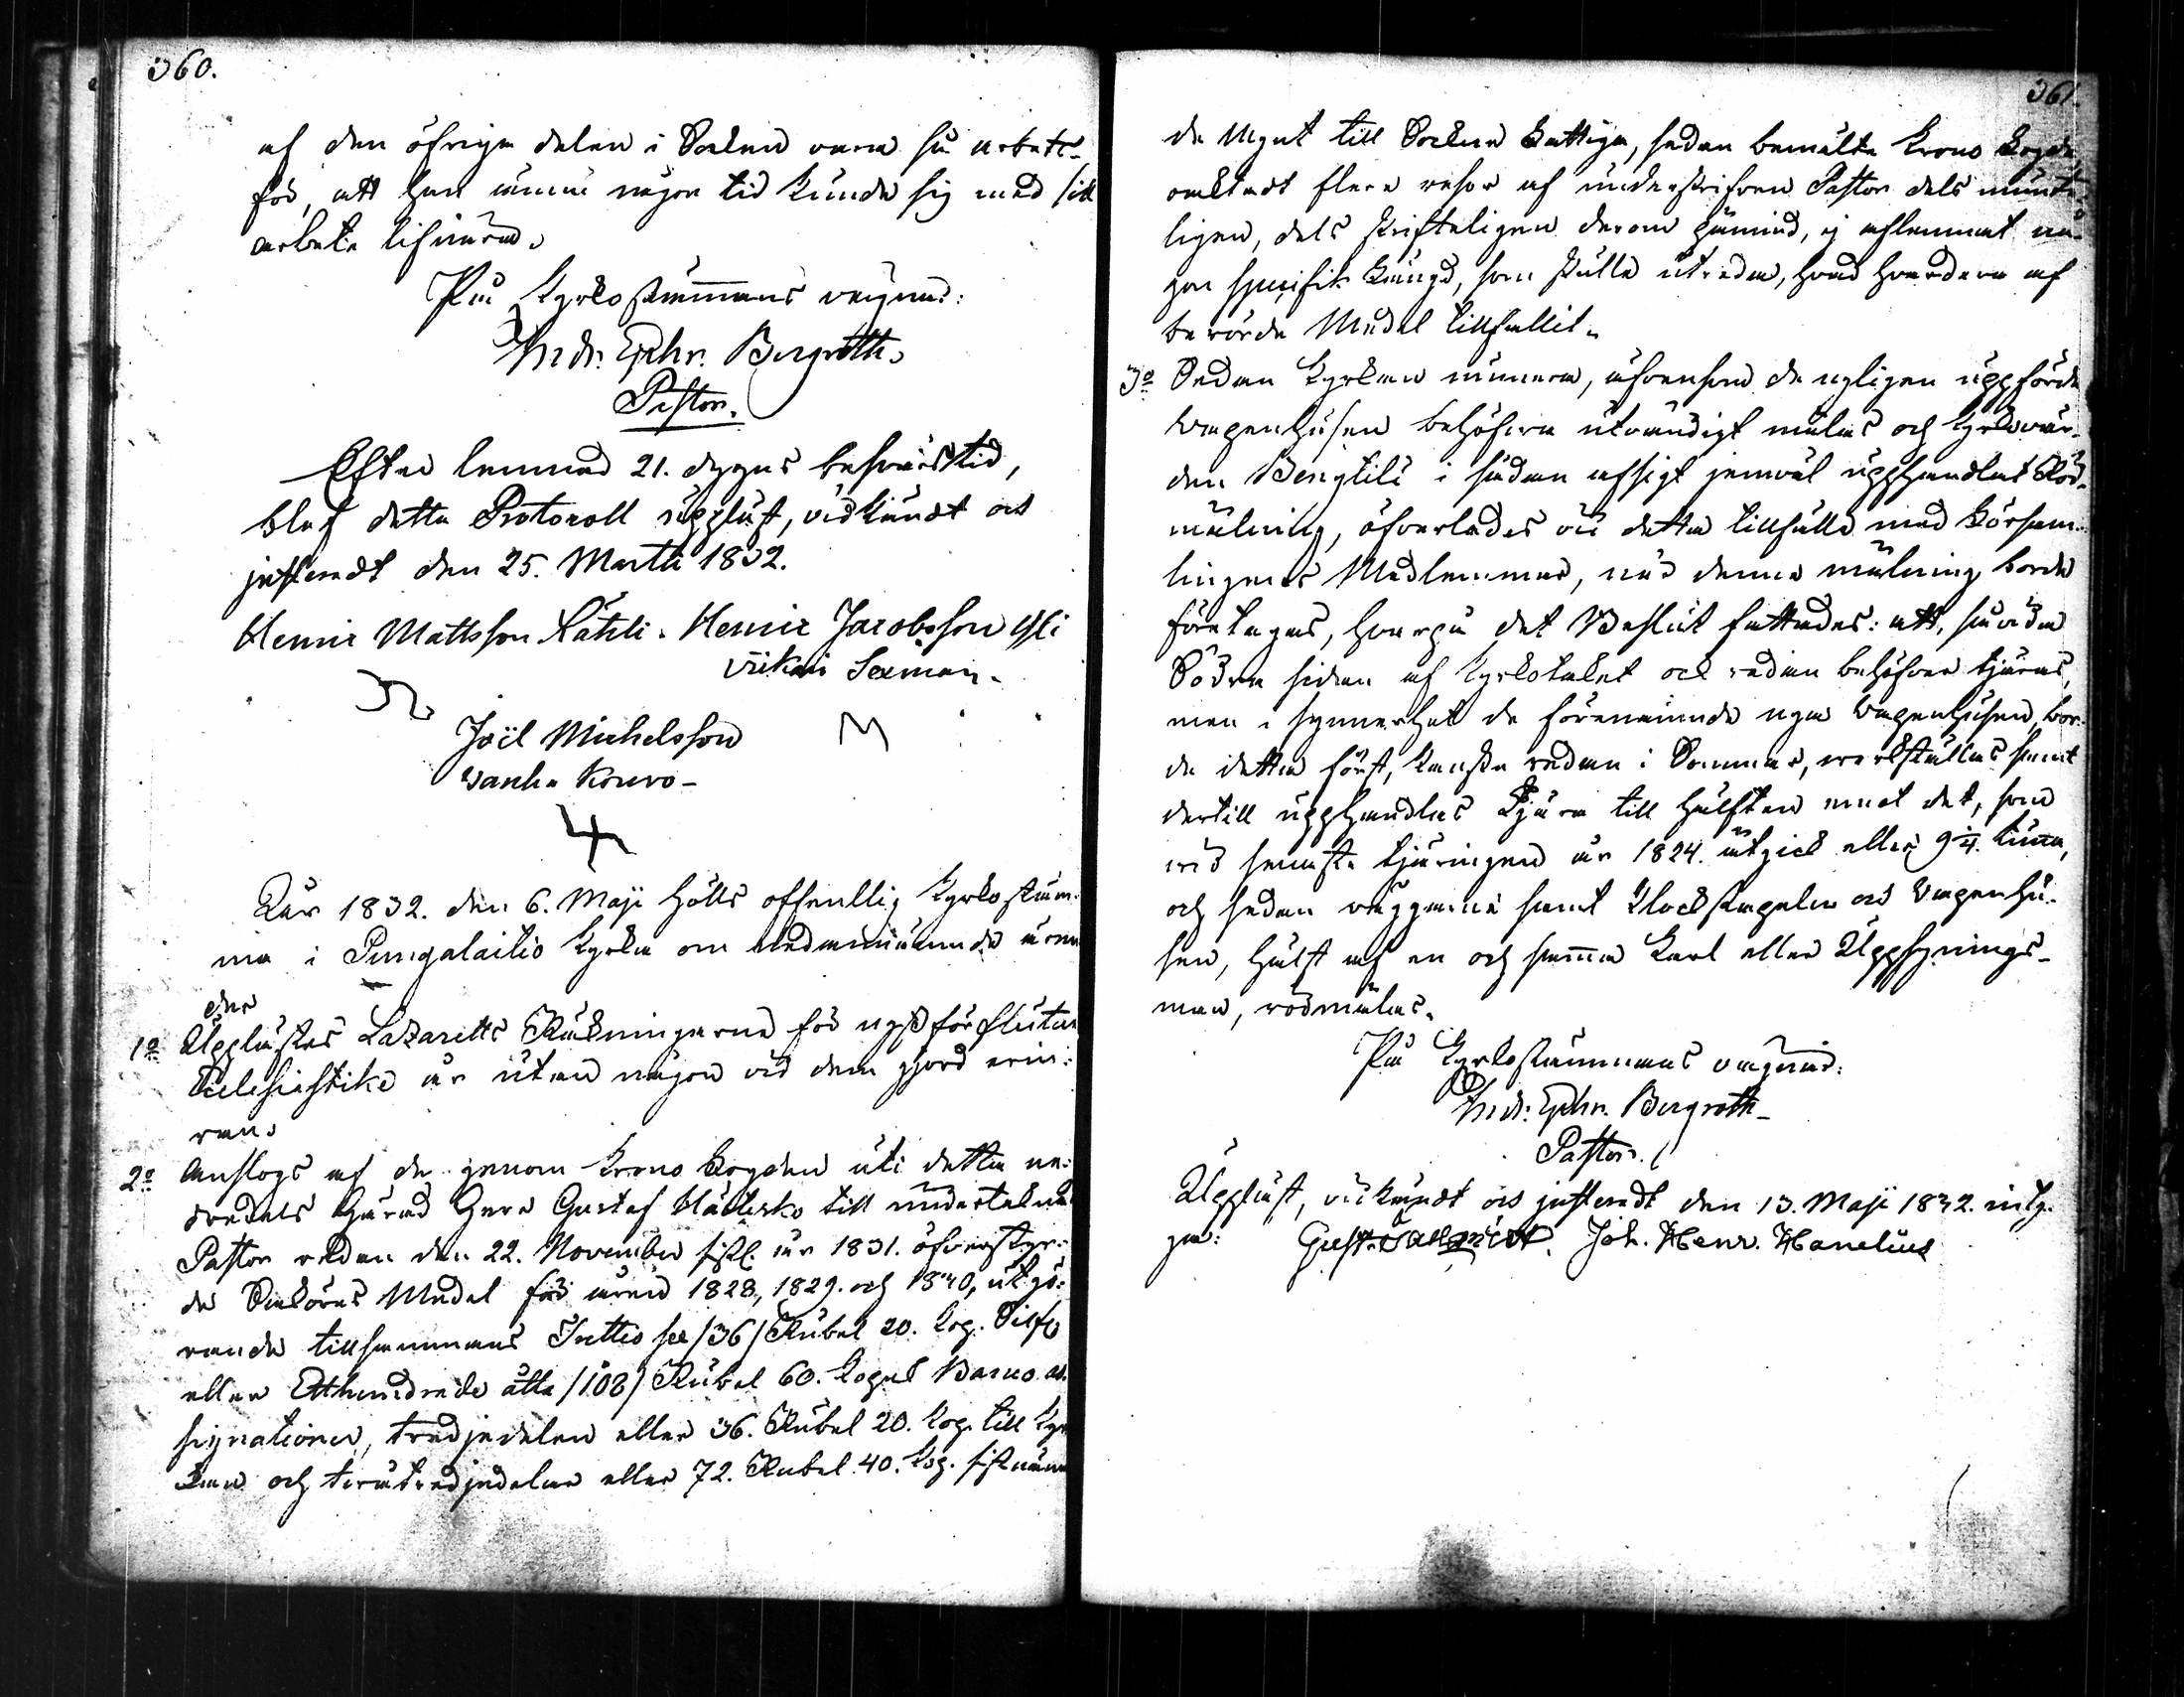 360.
af den öfriga delen i Socken vara så arbets-
för, att han ännu någon tid kunde sig med sitt
arbete lifnära.
På Kyrkostämmans vägnar:
Andr. Ephr. Bergroth.
Pastor.
Efter lemnad 21. dygns besvärstid,
blef detta Protocoll uppläst, vidkändt och
justeradt den 25. Martii 1832.
Henric Mattsson Kätzli. Henric Jacobsson
Sexman.
Joël Michelsson
Vanha Kouvo-
Åhr 1832. den 6. Maji hölls offentlig Kyrkostäm-
ma i Pungalaitio Kyrka om nedannämnde ären
der
1o Upplästes Lazaretts Räkningarne för nyss förflutna
Ecclesiastike år utan någon vid dem gjord erin-
ran.
2o Anslogs af de genom Krono Fogden uti detta ne-
dredels Härad Herr Gustaf till undertecknad
Pastor redan den 22. November sistl. år 1831. öfverstyr-
de Sakörs Medel för åren 1828, 1829. och 1830, utgö-
rande tillsammans Trettio sex /36/ Rubel 20. Kop. Silfv
eller Etthundrade åtta /108/ Rubel 60. Kopek Banco as-
signationer, tredjedelen eller 36. Rubel 20. Kop. till Kyr
kan och tvåtredjedelar eller 72. Rubel 40. Kop. sistnämn
361.
de Mynt till Sockne Fattige, sedan bemälte Krono Fogde,
oaktadt flere resor af underskrifven Pastor dels munt-
ligen, dels skrifteligen derom påmind, ej aflemnat nå-
gon specifik kungd, som skulle utreda, hvad hvardera af
berörde Medel tillfallit.
3o Sedan Kyrkan numera, äfvensom de nyligen uppförde
Vagenhusen behöfva utvändigt målas och Kyrkovär-
den Bengtili i sådan afsigt jemväl upphandlat Röd-
målning, öfverlades vid detta tillfälle med Försam-
lingenes Medlemmar, när denna målning borde
företagas, hvarpå det Beslut fattades: att, såvida
Södra sidan af Kyrkotaket ock redan behöfver tjäras,
men i synnerhet de förenämnde nya Vagenhusen, bor-
de detta först, kanske redan i Sommar, verkställas samt
dertill upphandlas Tjära till hälften emot det, som
vid senaste tjäringen år 1824. åtgick eller 9 1/4. tunna,
och sedan väggarne samt Klockstapeln och Vagenhu-
sen, hälst af en och samma Karl eller Uppsynings-
man, rödmålas.
På Kyrkostämmans vägnar:
Andr. Ephr. Bergroth-
Pastor.
Uppläst, vidkändt och justeradt den 13. Maji 1832. intyg-
ga: Joh. Henr. Hanelius